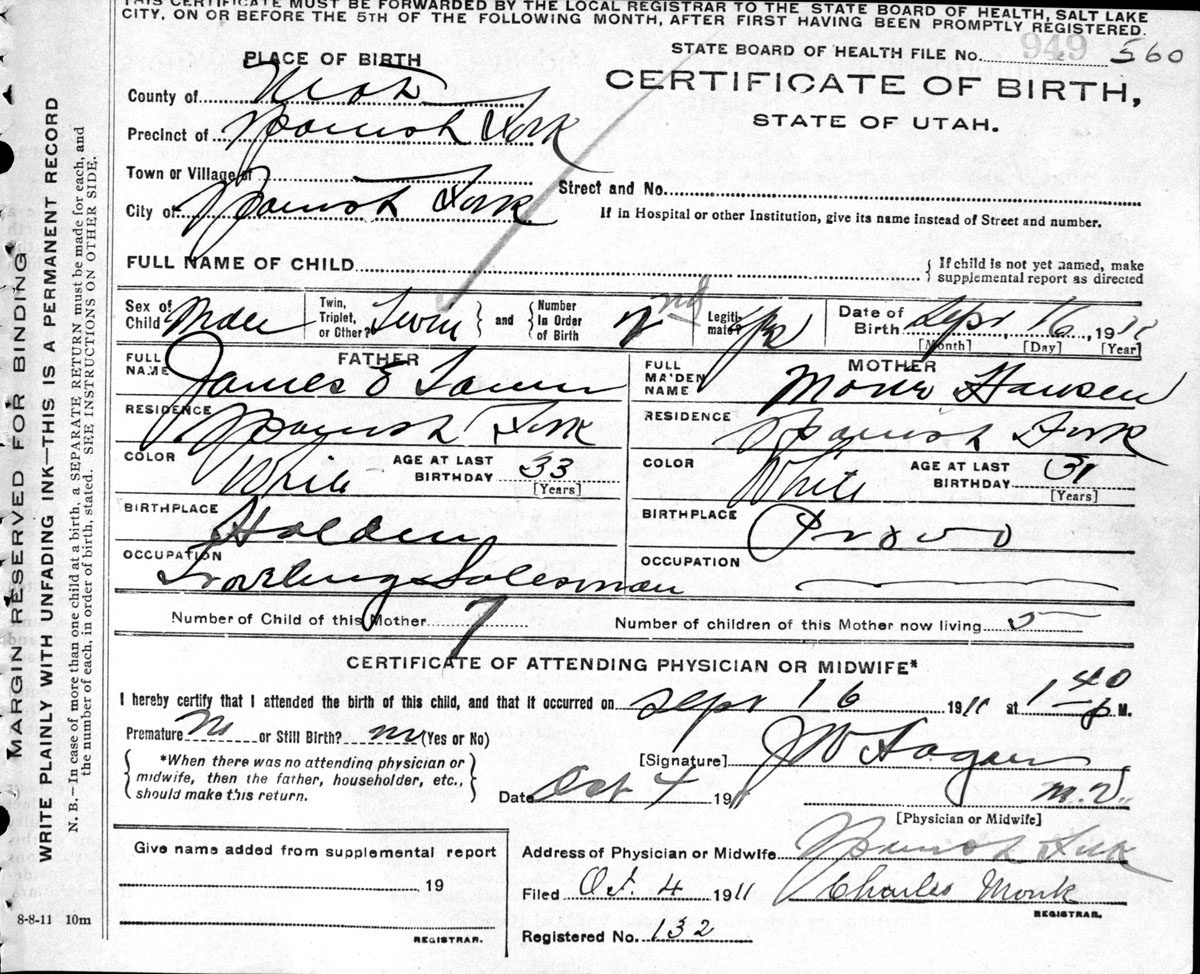 THIS CERTIFICATE MUST BE FORWARDED BY THE LOCAL REGISTRAR TO THE STATE BOARD OF HEALTH, SALT LAKE
CITY, ON OR BEFORE THE 5TH OF THE FOLLOWING MONTH, AFTER FIRST HAVING BEEN PROMPTLY REGISTERED.
STATE BOARD OF HEALTH FILE No. 949 560
CERTIFICATE OF BIRTH,
STATE OF UTAH.
PLACE OF BIRTH
County of Utah
Precinct of Spanish Fork
Town or Village of
City of Spanish Fork
Street and No.
If in Hospital or other Institution, give its name instead of Street and number.
FULL NAME OF CHILD
{ If child is not yet named, make
supplemental report as directed
Sex of Child Male
Twin, Triplet, or Other? Twin } and { Number in Order of Birth 2nd
Legitimate? yes
Date of Birth Sept 16, 1911
[Month] [Day] [Year]
FATHER
FULL NAME James E
RESIDENCE Spanish Fork
COLOR White AGE AT LAST BIRTHDAY 33
[Years]
BIRTHPLACE Holden
OCCUPATION Traveling Salesman
MOTHER
FULL MAIDEN NAME Hansen
RESIDENCE Spanish Fork
COLOR White AGE AT LAST BIRTHDAY 31
[Years]
BIRTHPLACE Provo
OCCUPATION
Number of Child of this Mother 7 Number of children of this Mother now living 5
CERTIFICATE OF ATTENDING PHYSICIAN OR MIDWIFE*
I hereby certify that I attended the birth of this child, and that it occurred on Sept 16 1911 at 1 40 P M.
Premature No or Still Birth? no (Yes or No)
{ *When there was no attending physician or
midwife, then the father, householder, etc.,
should make this return. }
[Signature] J W Hagan
M.D.
[Physician or Midwife]
Date Oct 4 1911
Give name added from supplemental report
19
REGISTRAR.
8-8-11 10m
Address of Physician or Midwife Spanish Fork
Filed Oct. 4 1911 Charles Monk
REGISTRAR.
Registered No. 132
MARGIN RESERVED FOR BINDING
WRITE PLAINLY WITH UNFADING INK—THIS IS A PERMANENT RECORD
N. B.—In case of more than one child at a birth, a SEPARATE RETURN must be made for each, and
the number of each, in order of birth, stated. SEE INSTRUCTIONS ON OTHER SIDE.